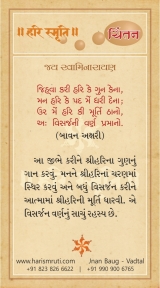 ॥ હરિ સ્મૃતિ ॥
ચિંતન
જય સ્વામિનારાયણ
જિહ્વા કરી હરિ કે ગુન કેના,
મન હરિ કે પદ મેં ધરી દેના;
ઉર મેં હરિ કી મૂર્તિ ઠાનો,
અઃ વિસર્જની વર્ણ પ્રમાનો.
(બાવન અક્ષરી)
આ જીભે કરીને શ્રીહરિના ગુણનું
ગાન કરવું. મનને શ્રીહરિનાં ચરણમાં
સ્થિર કરવું અને બધું વિસર્જન કરીને
આત્મામાં શ્રીહરિની મૂર્તિ ધારવી. એ
વિસર્જન વર્ણનું સાચું રહસ્ય છે.
www.harismruti.com
+91 823 826 6622
Jnan Baug - Vadtal
+91 990 900 6765